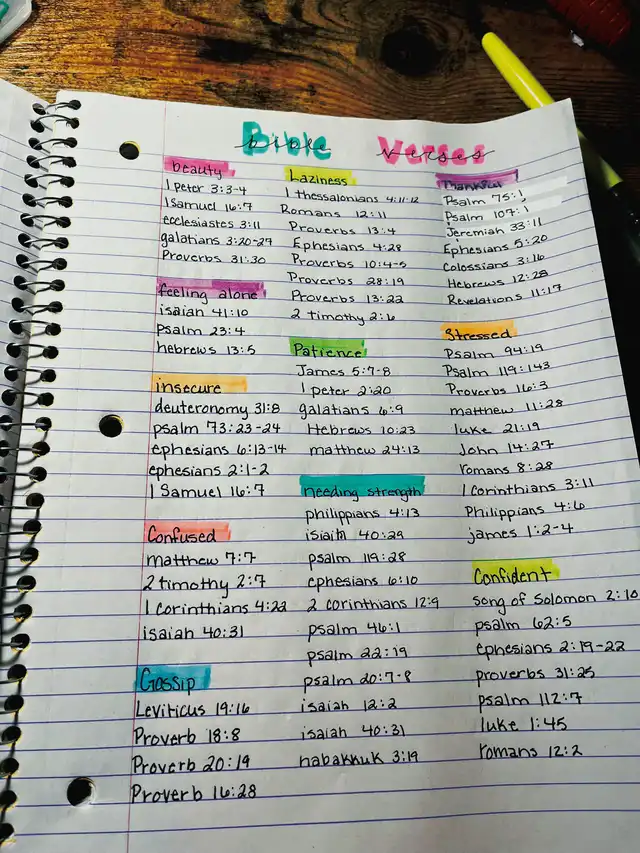 Bible Verses
beauty
1 peter 3:3-4
1 Samuel 16:7
ecclesiastes 3:11
galatians 3:20-27
Proverbs 31:30
feeling alone
isaiah 41:10
psalm 23:4
hebrews 13:5
insecure
deuteronomy 31:8
psalm 73:23-24
ephesians 6:13-14
ephesians 2:1-2
1 Samuel 16:7
Confused
matthew 7:7
2 timothy 2:7
1 Corinthians 4:22
isaiah 40:31
Gossip
Leviticus 19:16
Proverb 18:8
Proverb 20:19
Proverb 16:28
Laziness
1 thessalonians 4:11-12
Romans 12:11
Proverbs 13:4
Ephesians 4:28
Proverbs 10:4-5
Proverbs 28:19
Proverbs 13:22
2 timothy 2:6
Patience
James 5:7-8
1 peter 2:20
galatians 6:9
Hebrews 10:23
matthew 24:13
needing strength
philippians 4:13
isiaih 40:29
psalm 119:28
ephesians 6:10
2 corinthians 12:9
psalm 46:1
psalm 22:19
psalm 20:7-8
isaiah 12:2
isaiah 40:31
habakkuk 3:19
Thankful
Psalm 75:1
Psalm 107:1
Jeremiah 33:11
Ephesians 5:20
Colossians 3:16
Hebrews 12:28
Revelations 11:17
Stressed
Psalm 94:19
Psalm 119:143
Proverbs 16:3
matthew 11:28
luke 21:19
John 14:27
romans 8:28
1 Corinthians 3:11
Philippians 4:6
james 1:2-4
Confident
song of Solomon 2:10
psalm 62:5
ephesians 2:19-22
proverbs 31:25
psalm 112:7
luke 1:45
romans 12:2